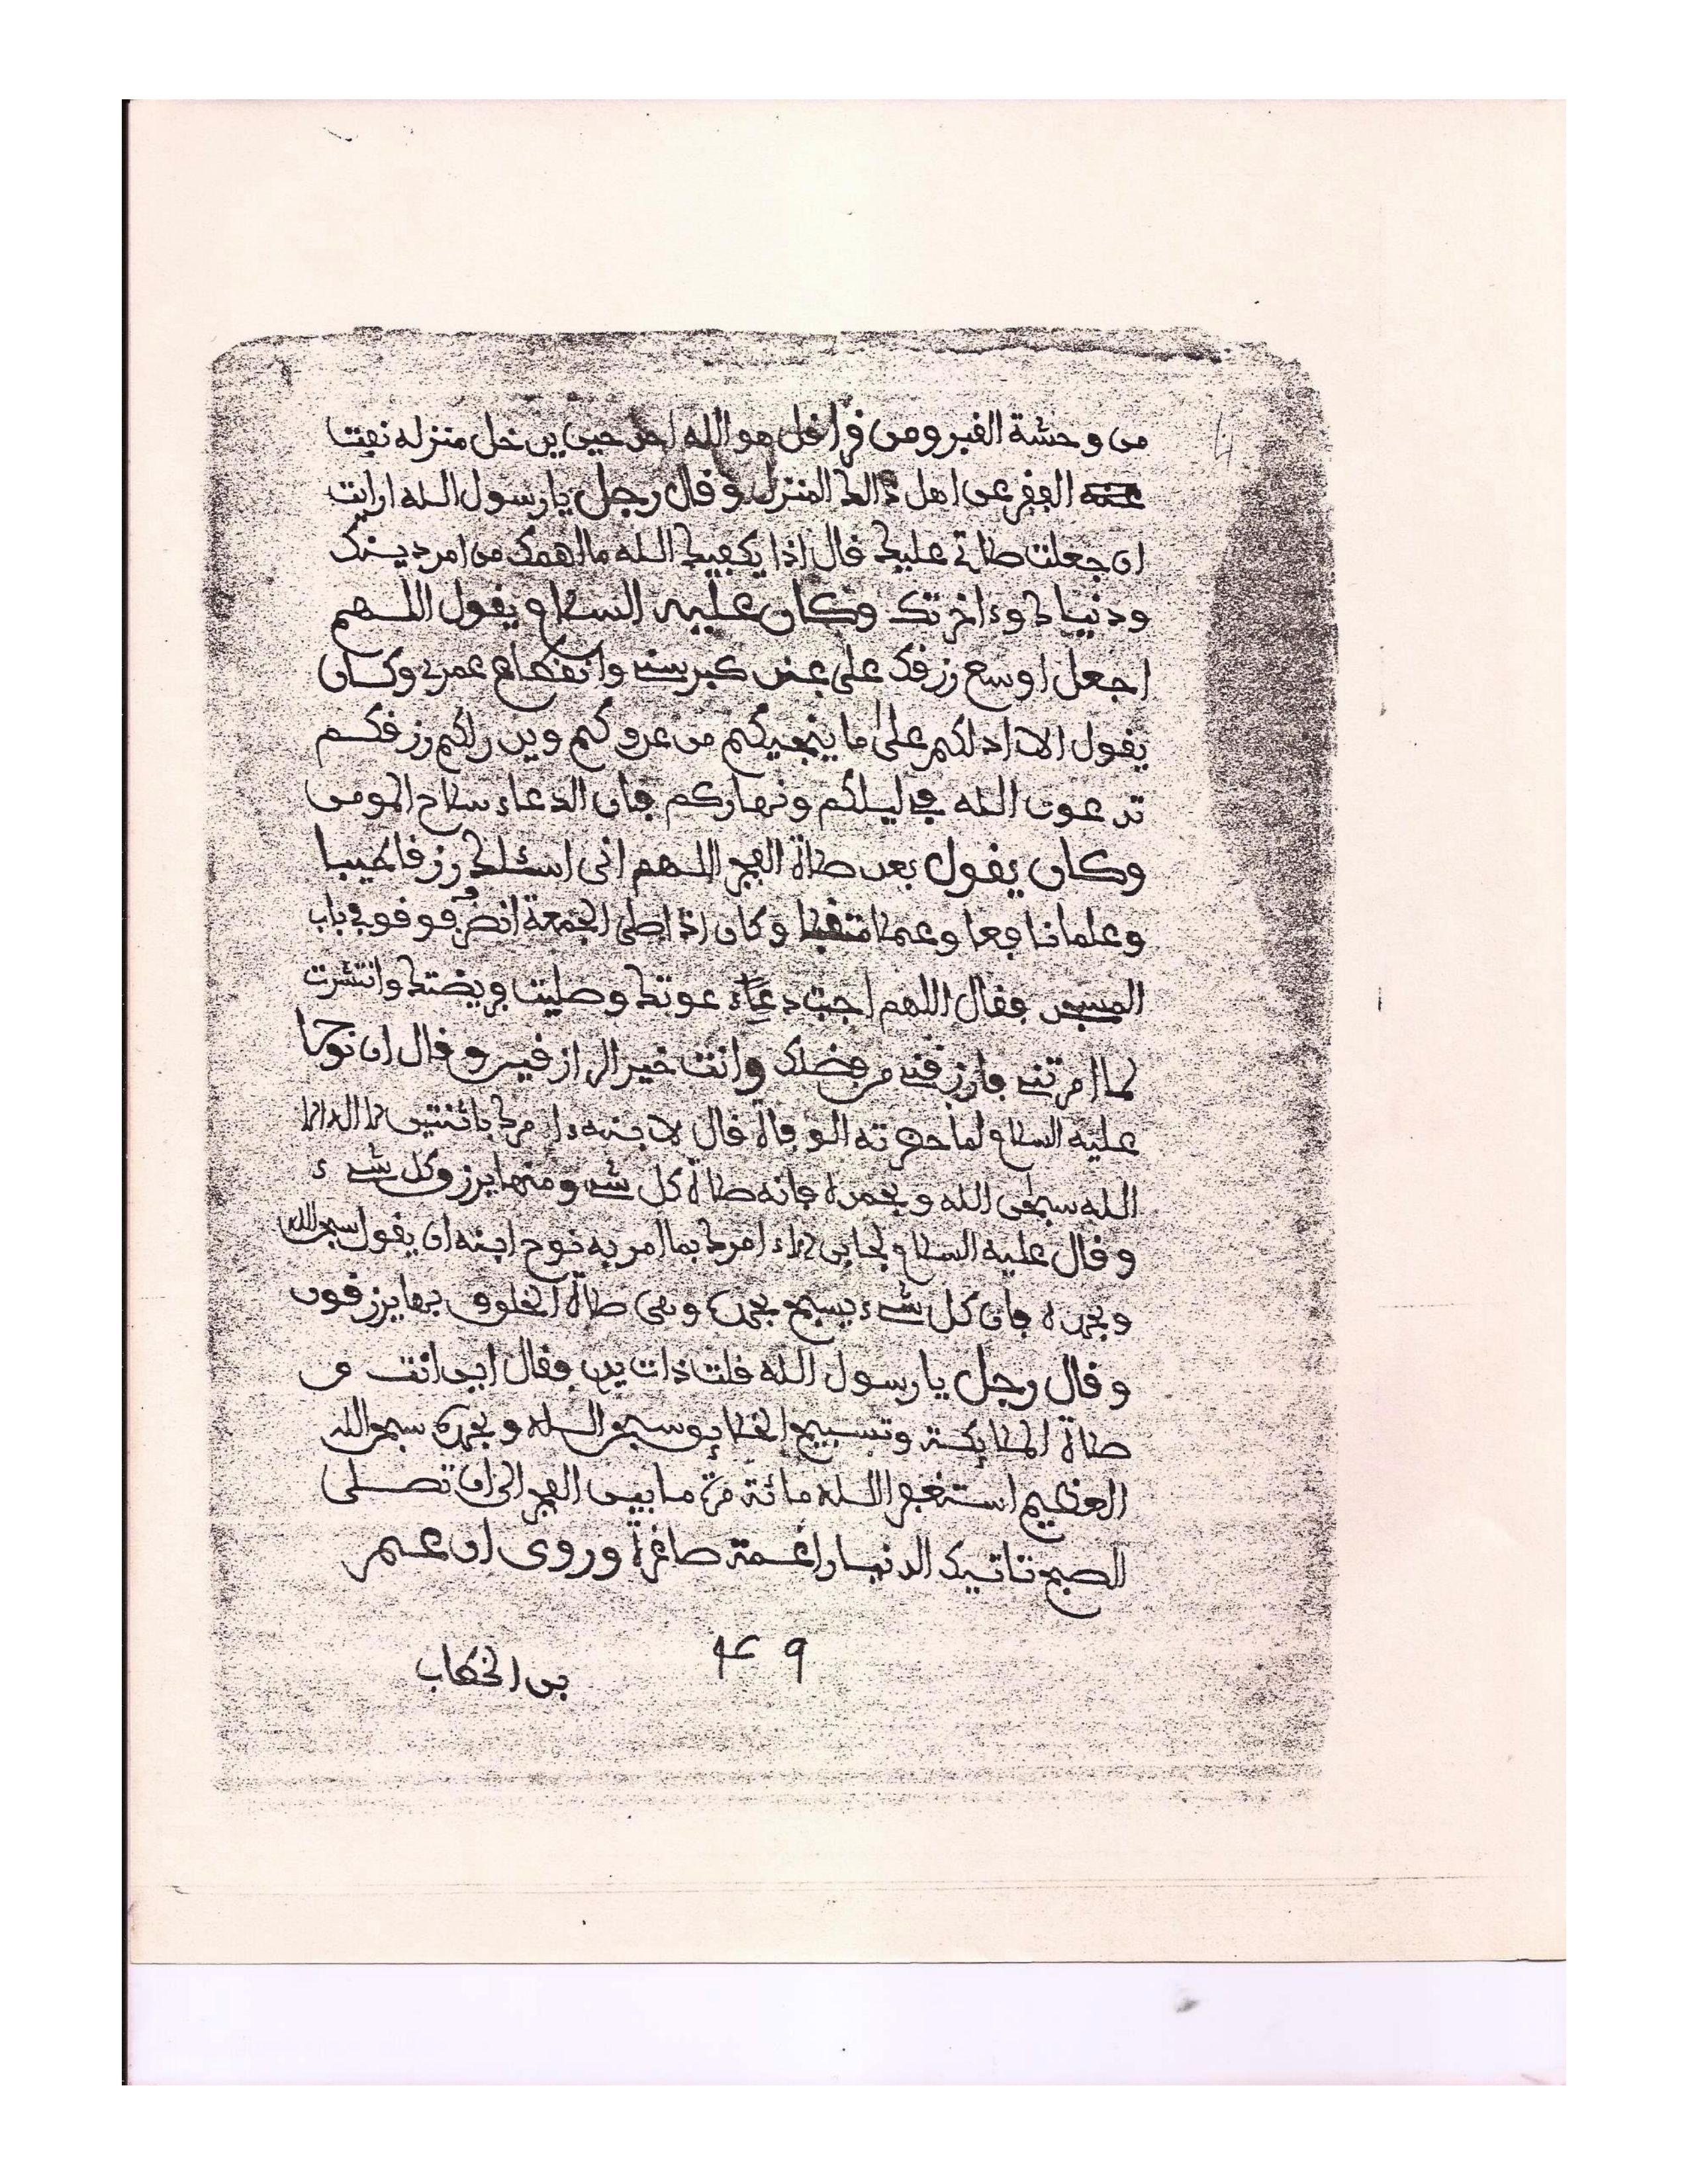 من وحشة القبر ومن قرا قل هو الله احد حين يدخل منزله نفت
الفقر عن اهل ذالك المنزل وقال رجل يا رسول الله ارايت
ان جعلت صلاتي عليك قال اذا يكفيك الله ما اهمك من امر دينك
ودنياك وءاخرتك وكان عليه السلام يقول اللهم
اجعل اوسع رزقك علي عند كبر سني وانقطاع عمري وكان
يقول الا ادلكم على ما ينجيكم من عدوكم ويدر لكم رزقكم
تدعون الله في ليلكم ونهاركم فان الدعاء سلاح المومن
وكان يقول بعد صلاة الفجر اللهم اني اسئلك رزقا طيبا
وعلما نافعا وعملا متقبلا وكان اذا صلى الجمعة انصرف ووقف في باب
المسجد فقال اللهم اجبت دعوتك وصليت فريضتك وانتشرت
كما امرتني فارزقني من فضلك وانت خير الرازقين وقال ان نوحا
عليه السلام لما حضرته الوفاة قال لابنه ءامرك باثنتين لا اله الا
الله سبحن الله وبحمده فانه صلاة كل شيء ومنها يرزق كل شيء
وقال عليه السلام لجابر الاء امرك بما امر به نوح ابنه ان يقول سبحن الله
وبحمده فان كل شيء يسبح بحمده وهي صلاة الخلوق بها يرزقون
وقال رجل يا رسول الله قلت ذات يدي فقال اين انت من
صلاة الملايكة وتسبيح الخلايق سبحن الله وبحمده سبحن الله
العظيم استغفر الله مائة مرة ما بين الفجر الى ان تصلى
الصبح تاتيك الدنيا راغمة صاغرة وروى ان عمر
بن الخطاب